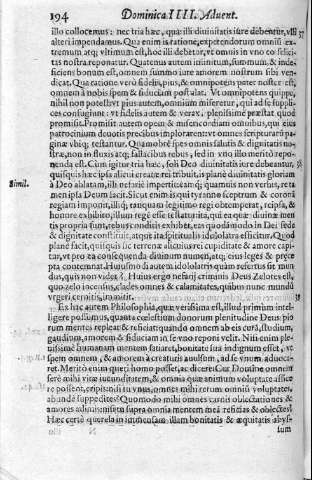 194 Dominica IIII. Aduent.
illo collocemus: nec tria hæc, quæ illi diuinitatis iure debentur, vlli 37
alteri impendamus. Qua enim is ratione, expetendorum omnium extremum
atq; vltimum est, hoc illi debetur, vt omnis in vno eo felicitas
nostra reponatur. Quatenus autem infinitum, summum, & indeficiens
bonum est, omnem summo iure amorem nostrum sibi vendicat.
Qua ratione verò fidelis, pius, & omnipotens pater noster est:
omnem à nobis spem & fiduciam postulat. Vt omnipotens quippe,
nihil non potest: vt pius autem, omnium miseretur, qui ad se supplices
confugiunt: vt fidelis autem & verax, plenissimè præstat quod
promisit. Promisit autem opem & misericordiam omnibus, qui eius
patrocinium deuotis precibus implorarent: vt omnes scripturarū paginæ
vbiq; testantur. Quamobrē spes omnis salutis & dignitatis nostræ,
non in fluxis atq; fallacibus rebus, sed in vno illo meritò reponenda
est. Cùm igitur tria hæc, soli Deo diuinitatis iure debeantur,
quisquis hæc ipsa alicui creatæ rei tribuit, is planè diuinitatis gloriam
Simil. à Deo ablatam, illi nefariè impertit:
regiam imponit, illiq;
honore exhibito, illum regē esse testatur: ita, qui ea quæ diuinæ mentis
propria sunt, rebus conditis exhibet,
& dignitate constituit, atque ita spiritualis idololatra efficitur. Quod
planè facit, quisquis sic terrenæ alicuius rei cupiditate & amore capitur,
vt pro ea consequenda diuinum numen, atq; eius leges & præcepta
contemnat. Huiusmodi autem idololatris quàm refertus sit mundus,
quis non videt? Huius ergo nefarij criminis Deus Zelotes est,
quo zelo incensus, clades omnes & calamitates, quibus nunc mundū
vrgeri cernitis, immittit.
Ex hac autem Philosophia, quæ verissima est, illud primùm intelligere
possumus, quanta cœlestium donorum plenitudine Deus piorum
mentes repleat & reficiat: quando omnem ab eis curā, studium,
gaudium, amorem & fiduciam in se vno reponi velit. Nisi enim plenissimè
humanam mentem satiaret, bonitate sua indignum esset, vt
spem omnem, & amorem à creatutis auulsum, ad se vnum aduocaret.
Meritò enim queri homo posset, ac dicere: Cur Domine omnem
serè mihi vitæ iucunditatem, & omnia quæ animum voluptate afficere
possent, eripis, nisi tu vnus, omnes mihi rerum omniū voluptates,
abundè suppedites? Quomodo mihi omnes carnis obiectationes &
amores adimis, nisi tu supra omnia mentem meā reficias & oblectes?
Hæc certè querela in immensam illam bonitatis & æquitatis abys-
sum